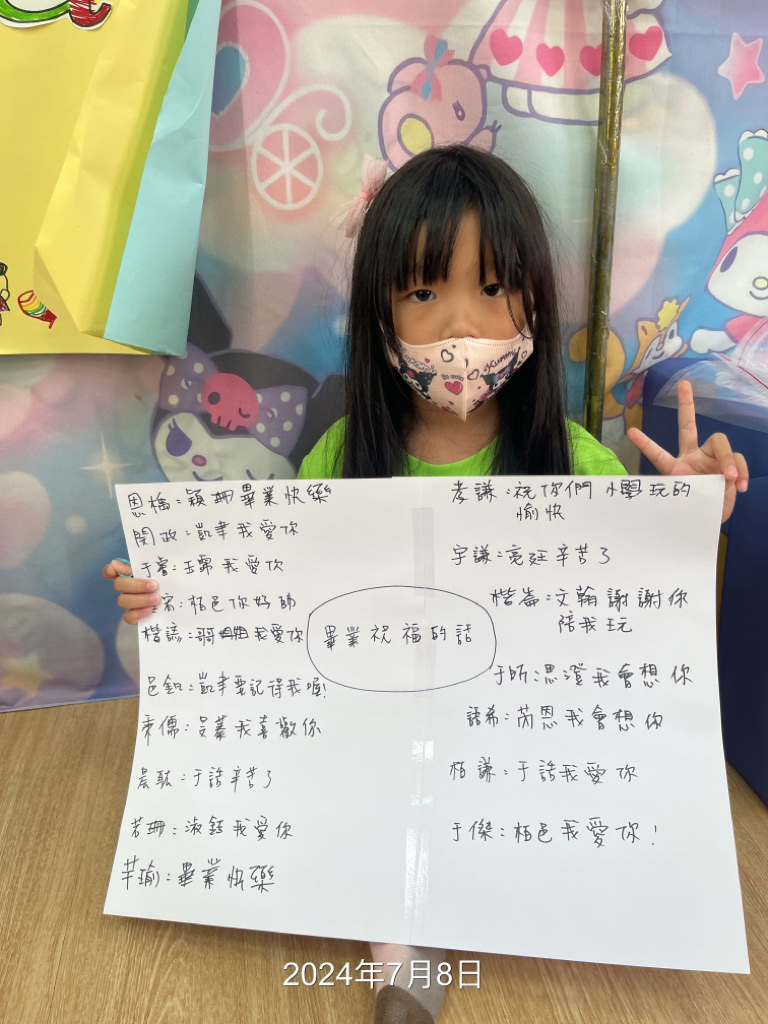 恩楀：穎珊畢業快樂
閔政：凱聿我愛你
于睿：玉霈我愛你
宥：栢邑你好帥
楷諺：我愛你
邑鉑：凱聿要記得我喔！
束儒：旻蓁我喜歡你
晨駼：于喆辛苦了
若珊：淑鈺我愛你
芊瑜：畢業快樂
畢業祝福的話
孝謙：祝你們 小學玩的
愉快
宇謙：亮廷辛苦了
楷崙：文翰謝謝你
陪我玩
于昕：思澄我會想你
語希：芮恩我會想你
栢謙：于喆我愛你
于傑：栢邑我愛你！
2024年7月8日